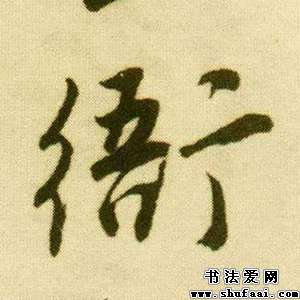 衙
书法爱网
www.shufaai.com